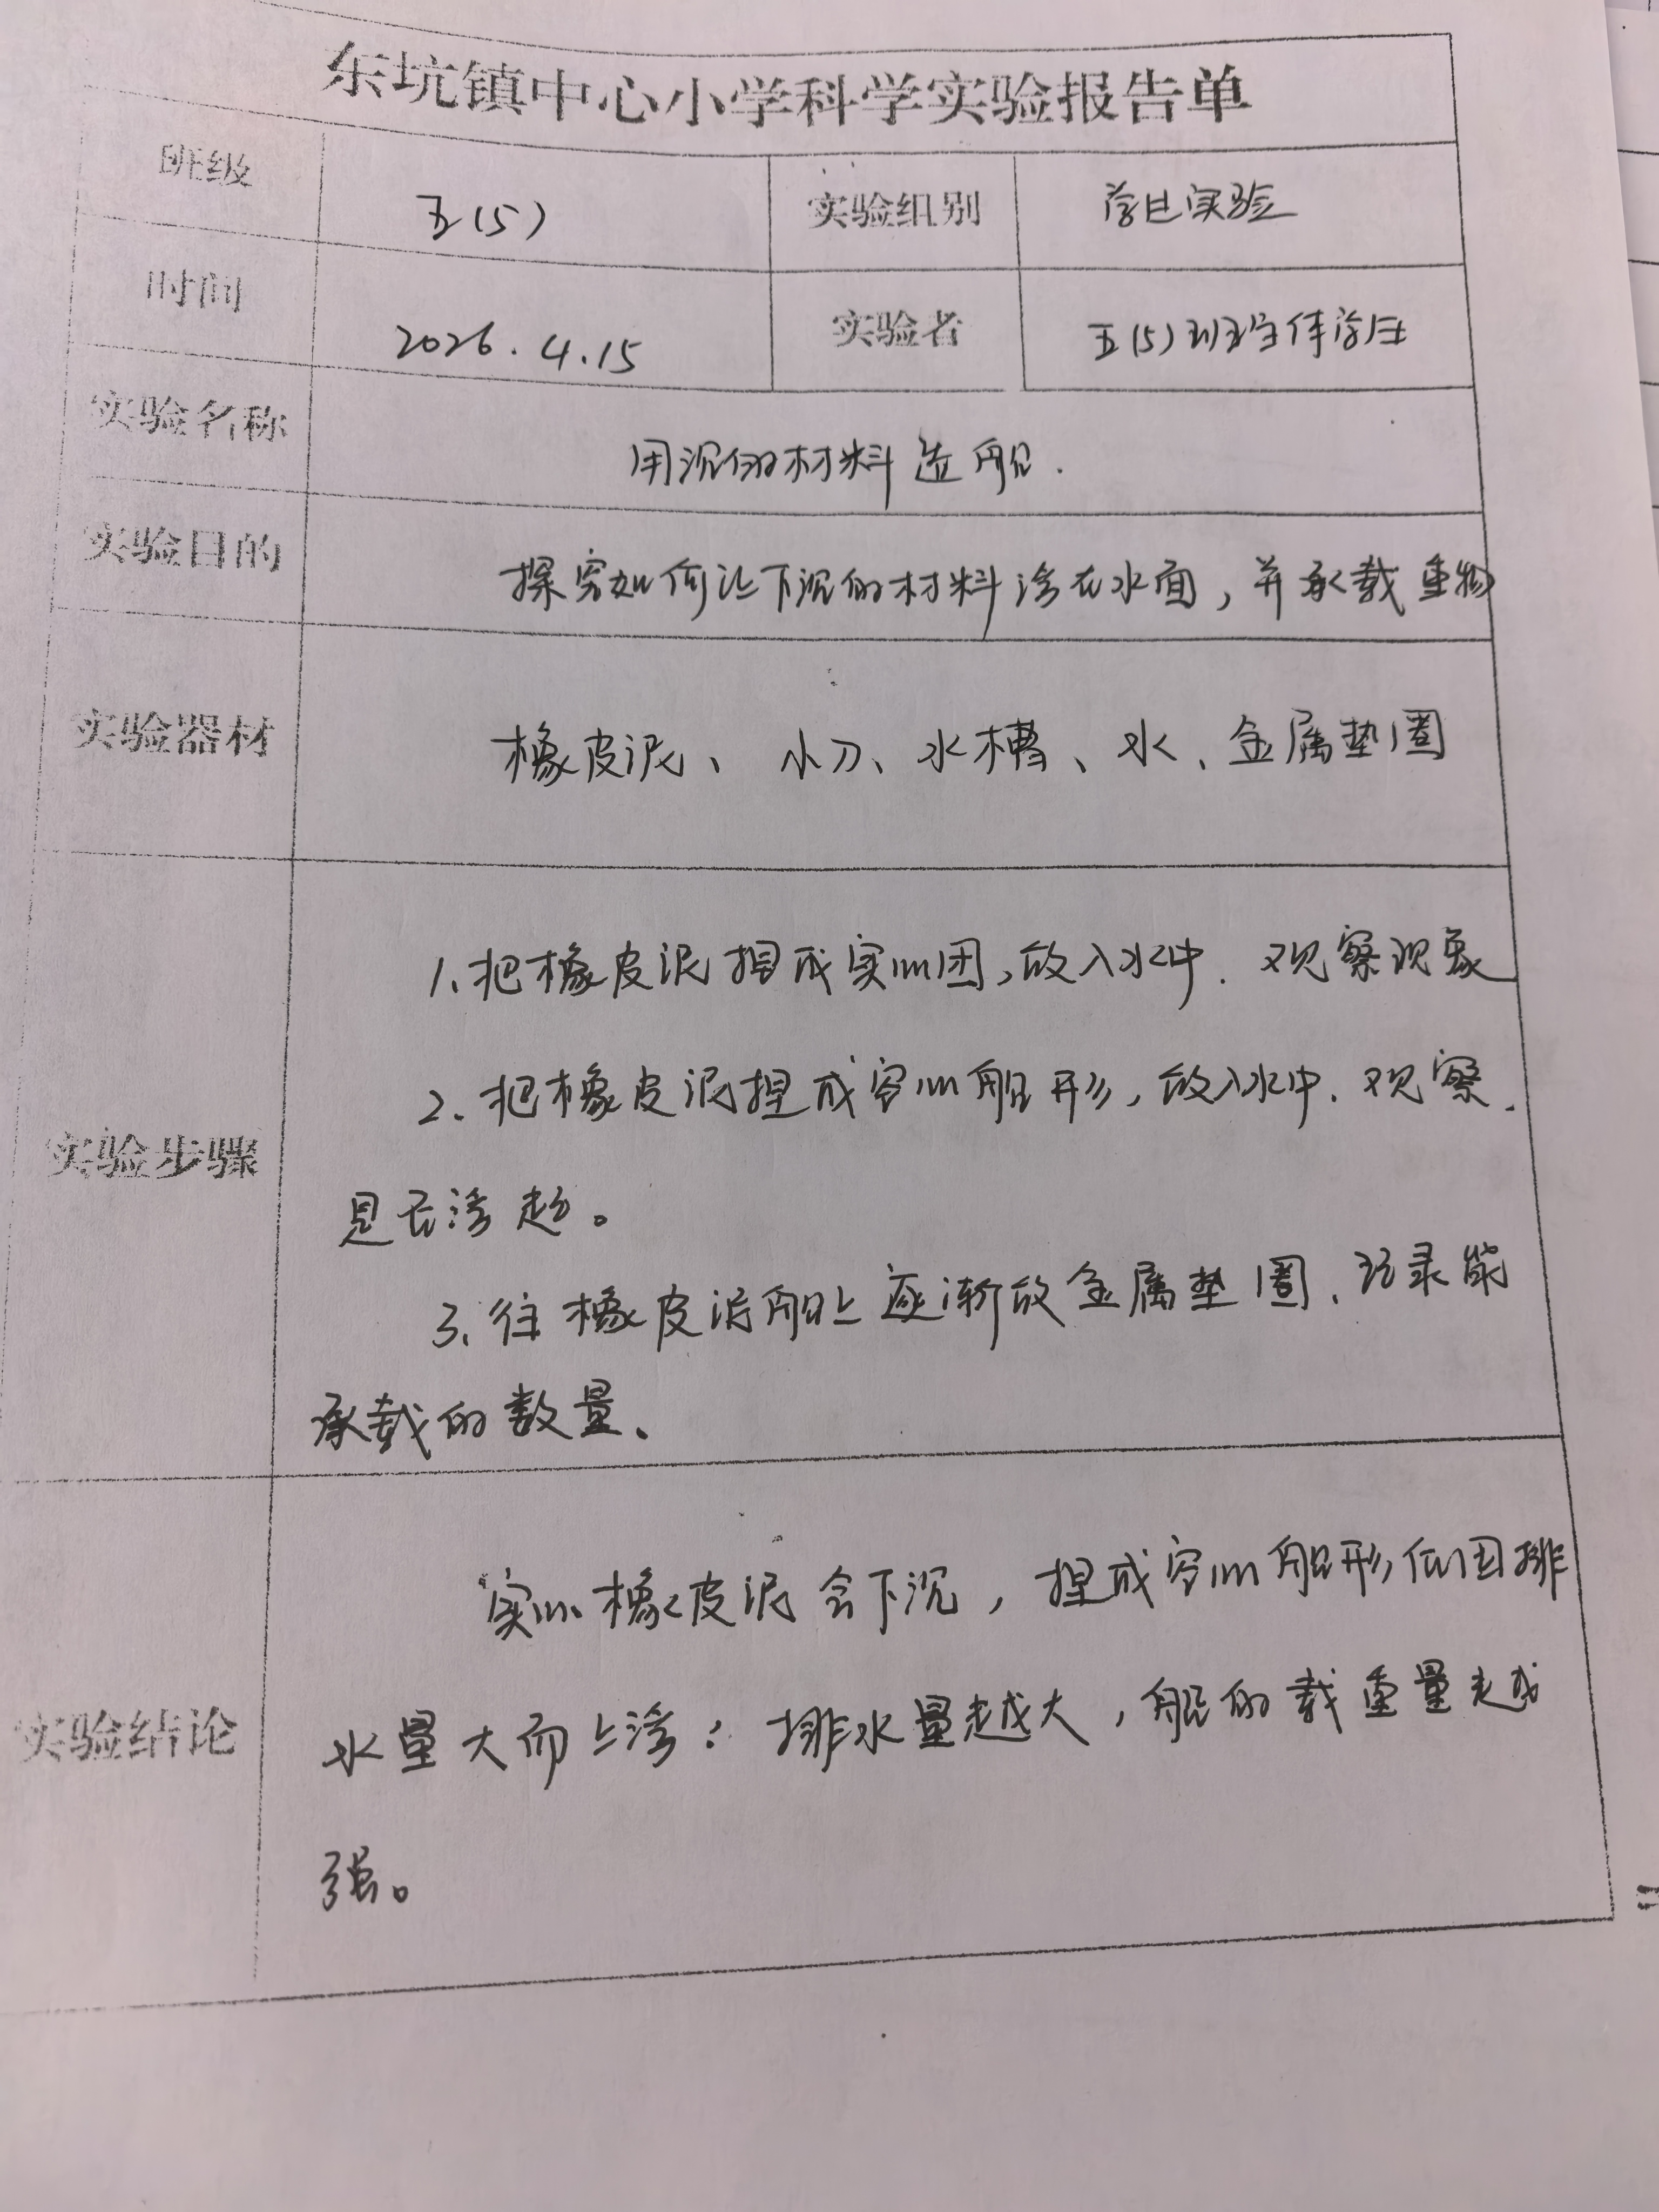 东坑镇中心小学科学实验报告单
班级 五(5) 实验组别 学生实验
时间 2026.4.15 实验者 五(5)班全体学生
实验名称 用沉的材料造船.
实验目的 探究如何让下沉的材料浮在水面,并承载重物
实验器材 橡皮泥、小刀、水槽、水、金属垫圈
实验步骤
1.把橡皮泥捏成实心团,放入水中.观察现象
2.把橡皮泥捏成空心船形,放入水中.观察
是否浮起。
3.往橡皮泥船上逐渐放金属垫圈.记录能
承载的数量.
实验结论
实心橡皮泥会下沉,捏成空心船形后因排
水量大而上浮;排水量越大,船的载重量越
强。